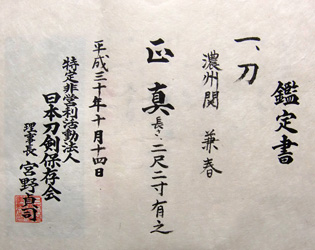 鑑定書
一、刀
濃州関 兼春
正真 長さ、二尺二寸有之
平成三十年十月十四日
特定非営利活動法人
日本刀剣保存会
理事長 宮野貞司